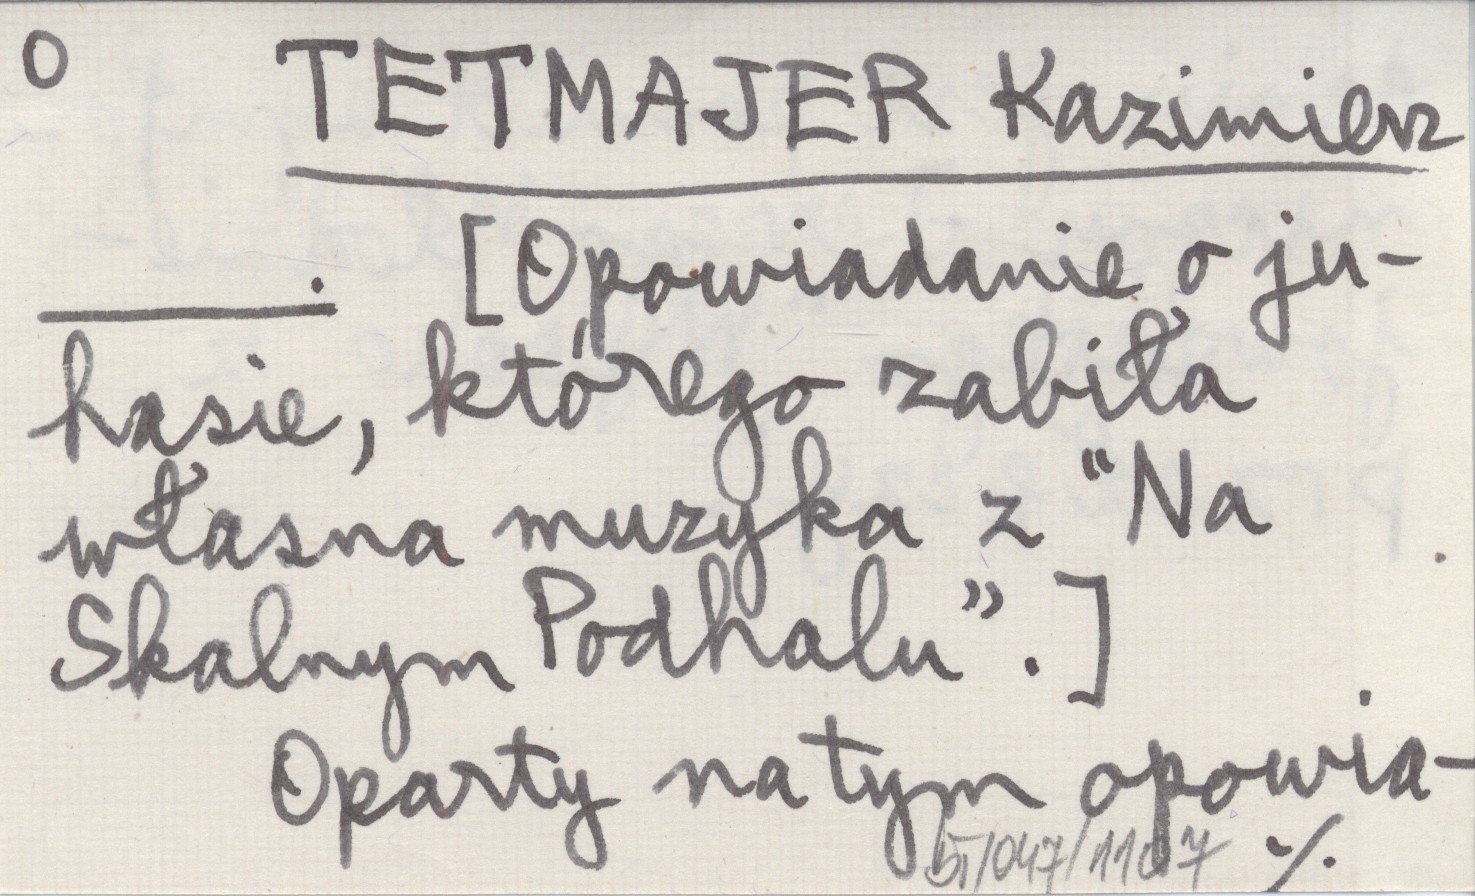 O TETMAJER Kazimierz
. [Opowiadanie o ju-
hasie, którego zabiła
własna muzyka z “Na
Skalnym Podhalu”.]
Oparty na tym opowia-
./.